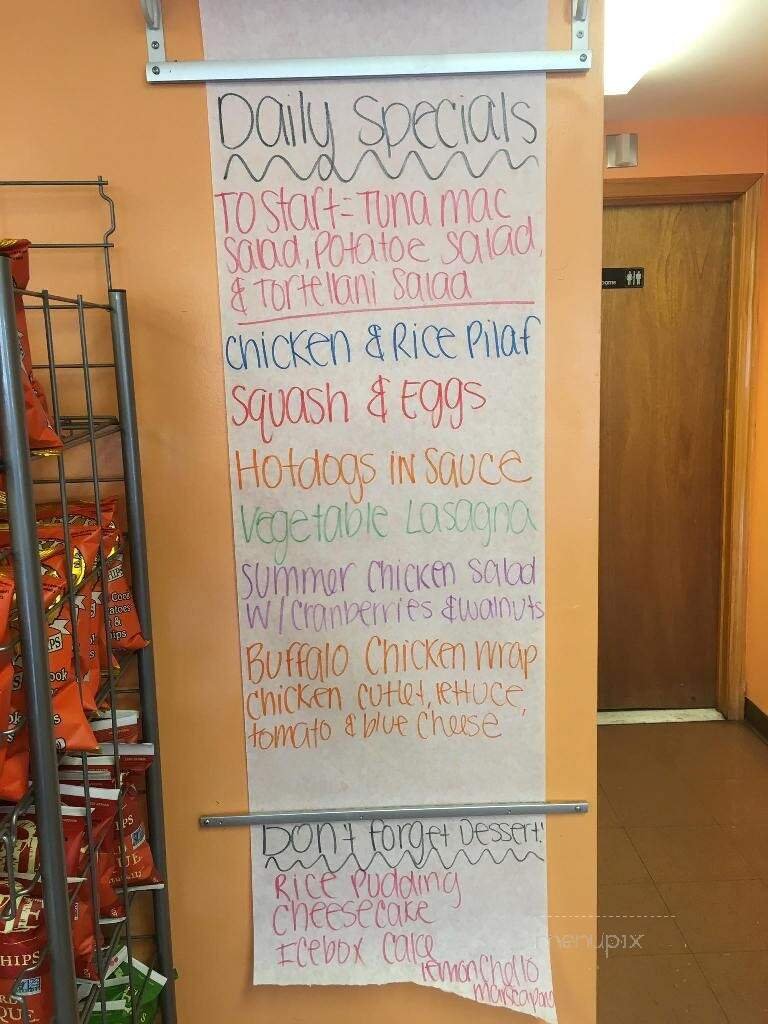 Daily Specials
To start = Tuna mac
salad, Potatoe salad,
& Tortellani Salad
Chicken & Rice Pilaf
Squash & Eggs
Hotdogs in Sauce
Vegetable Lasagna
Summer Chicken Salad
W/Cranberries & walnuts
Buffalo Chicken Wrap
chicken cutlet, lettuce,
tomato & blue cheese
Don't Forget Dessert!
Rice Pudding
Cheesecake
Icebox Cake
lemonchello
marscapone
menupix
CHIPS